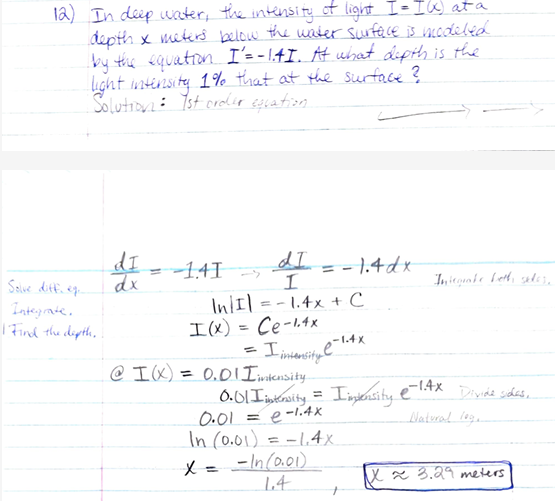 12) In deep water, the intensity of light I = I(x) at a
depth x meters below the water surface is modeled
by the equation I' = -1.4I. At what depth is the
light intensity 1% that at the surface?
Solution: 1st order equation
dI/dx = -1.4I → dI/I = -1.4dx Integrate both sides.
Solve diff. eq.
Integrate.
Find the depth.
ln|I| = -1.4x + C
I(x) = Ce^-1.4x
= I_intensity e^-1.4x
@ I(x) = 0.01 I_intensity
0.01 I_intensity = I_intensity e^-1.4x Divide sides.
0.01 = e^-1.4x Natural log.
ln(0.01) = -1.4x
x = -ln(0.01)/1.4 , x ≈ 3.29 meters